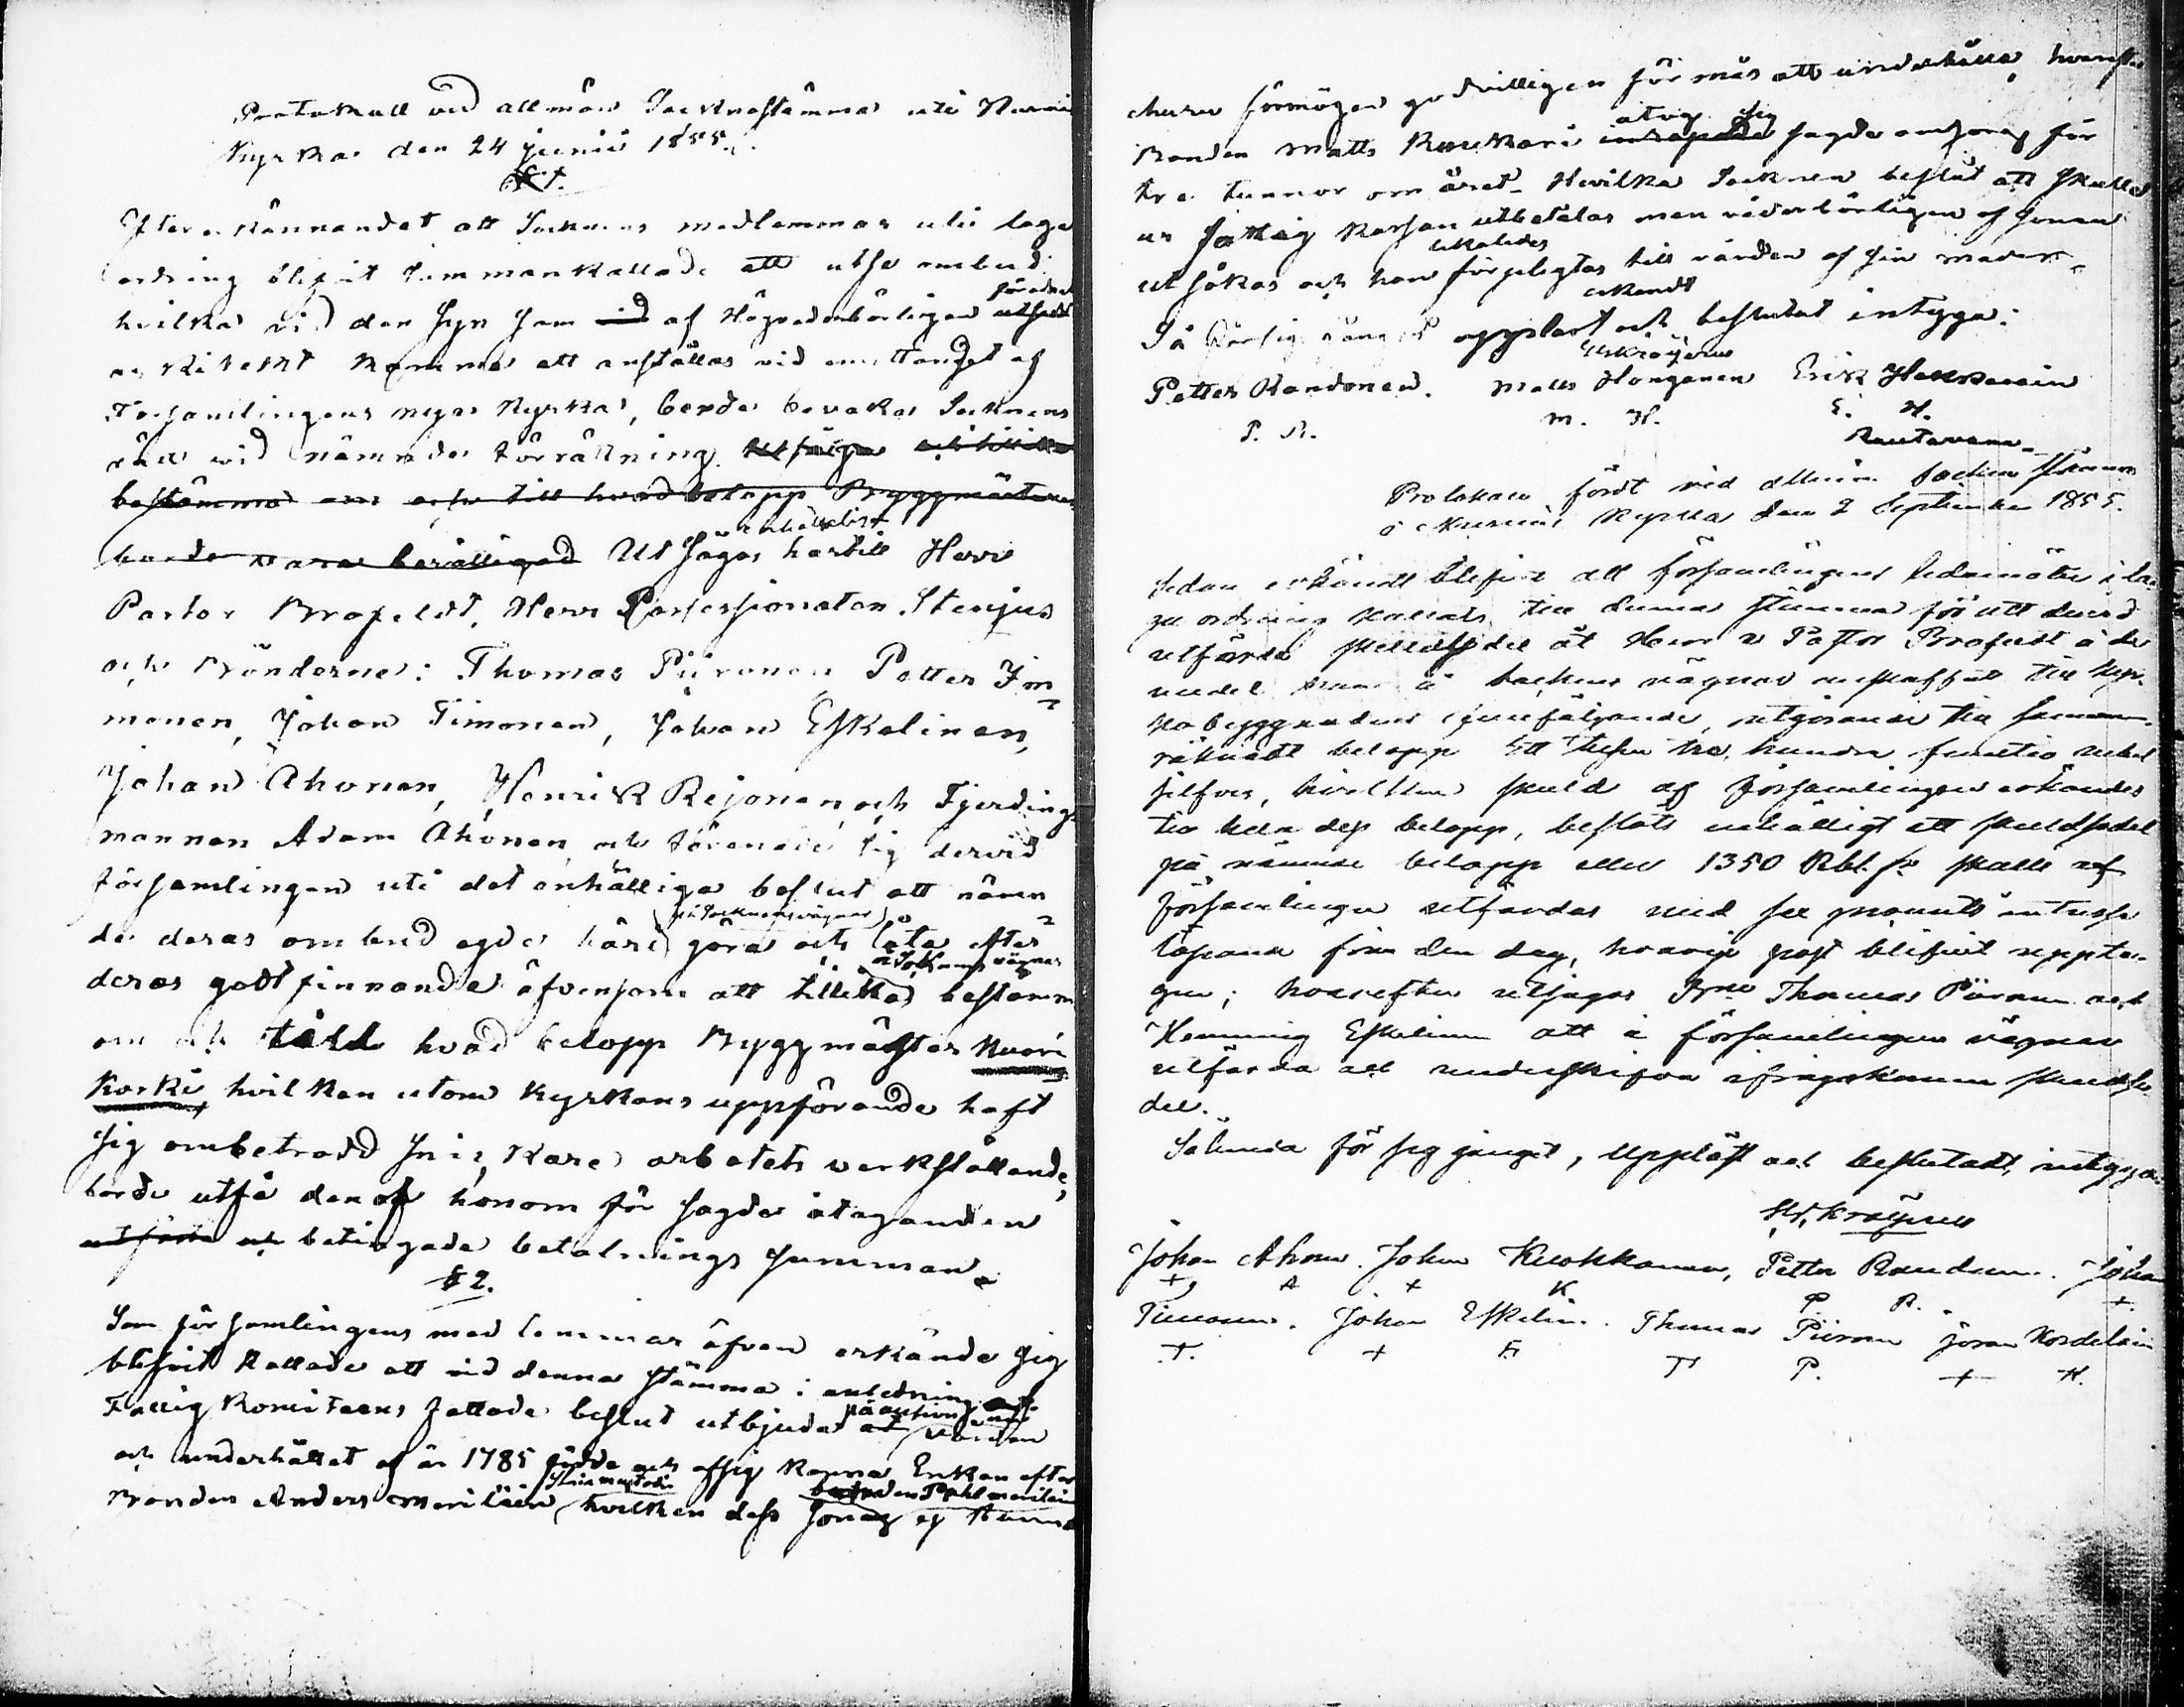 Protokoll vid allmän Socknestämma uti Nurmis
Kyrka den 24 Junii 1855.
§ 1.
Efter erkännandet att Socknens medlemmar uti laga
ordning blifvit Sammankallade att utse ombud
hvilka vid den Syn som af Högvederbörligen förordnad
arkitekt komme att anställas vid emottandet af
Församlingens nya Kyrka, borde bevaka Socknens
rätt vid nämnde förrättning.
bestämma om och till hvad belopp Byggmästaren
borde vara berättigad Utsågos enhälleligt härtill Herr
Pastor Brofeldt, Herr Possessionaten Stenjus
och Bönderne: Thomas Piironen Petter Im-
monen, Johan Timonen, Johan Eskelinen,
Johan Ahonen, Henrik Reijonen, och Fjerdings
mannen Adam Ahonen, och förenade sig dervid
församlingen uti det enhälliga beslut att nämn
de deras ombud egde häri på Socknens vägnar göra och låta efter
deras godtfinnande äfvensom att tillika å Socknens vägnar bestämm
om och till hvad belopp Byggmästar Kuori
koski hvilken utom kyrkans uppförande haft
sig ombetrodd Snickare arbetets verkställande,
borde utfå den af honom för sagde åtaganden
betingade betalnings summan.
§ 2.
Som församlingens medlemmar äfven erkände sig
blifvit kallade att vid denna stämma i anledning af
Fattig Komiteens fattade beslut utbjuda på auktion vården
och underhållet af år 1785 födde och afsig komna Enkan efter
Bonden Anders Meriläin hvilken dess Son Bonden Pohl Meriläin ej kunna
förmögen godvilligen förmås att underhålla, hvarefter
Bonden Matts Kaukari åtog sig sagde omsorg för
tre tunnor om året. Hvilka Socknen beslöt att skulle
ur fattig Kassan utbetalas men vederbörligen af Sonen
utsökas och han likaledes förpligtas till vården af sin moder.
Så försig gånget uppläst erkändt och beslutat intyga:
Utskrifvena
Petter Randonen. Matts Honganen Erik Hakkarain
P. R. M. H. E. H.
Rautavaara
Protokoll fördt vid allmän Socknestämma
i Nurmis Kyrka den 2 September 1855.
Sedan erkändt blifvit att församlingens ledamöter i la
ga ordning kallats till denna stämma för att
utfärda skuldsedel åt Herr Pastor Brofeldt å de
medel som å Socknens vägnar anskaffats till kyr-
kobyggnadens utgörande till samman-
räknadt belopp Ett tusen tre hundra femtio rubel
silfver, hvilken skuld af församlingen erkändes
till hela dess belopp, beslöts enhälligt att skuldsedel
på nämnde belopp eller 1350 Rbl. Sr skulle af
församlingen utfärdas med sex procents intresse
löpande från den dag, hvarje post blifvit uppta-
gen; hvarefter utsågos Thomas Piironen och
Hemming Eskelinen att å församlingens vägnar
utfärda och underskrifva ifrågakomne skuldse
del.
Sålunda för sig gånget, uppläst och beslutadt, intyga:
Johan Ahonen. Johan Kuokkanen, Petter Randonen. Johan
+ A + K P R. +
Timonen. Johan Eskelin. Thomas Piironen Jöran Kordelain
T. + E T P. + K.